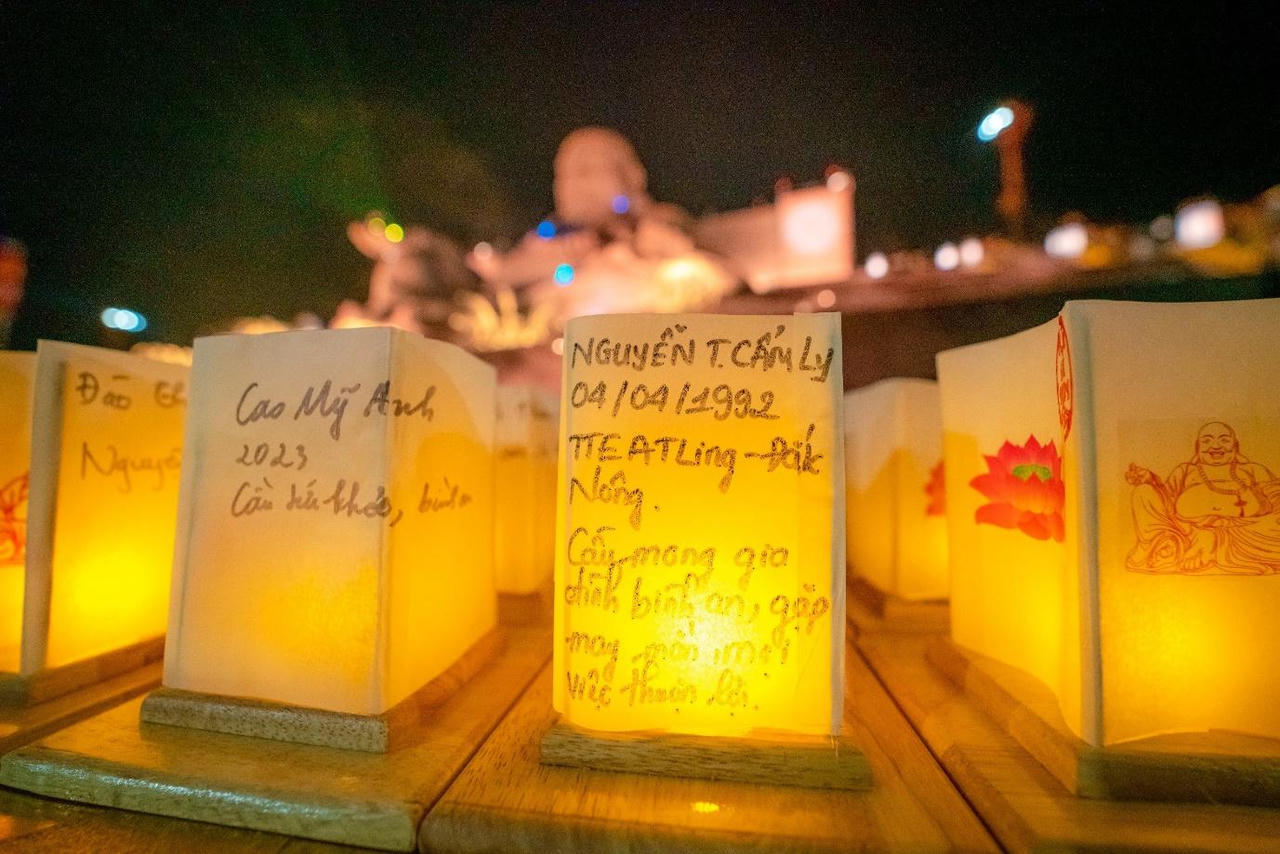 Đào
Nguyễ
Cao Mỹ Anh
2023
Cầu sức khỏe, bình
NGUYỄN T.CẨM Ly
04/04/1992
TTEATLing-Đắk
Nông.
Cầu mong gia
đình bình an, gặp
may mắn mọi
việc thuận lợi.